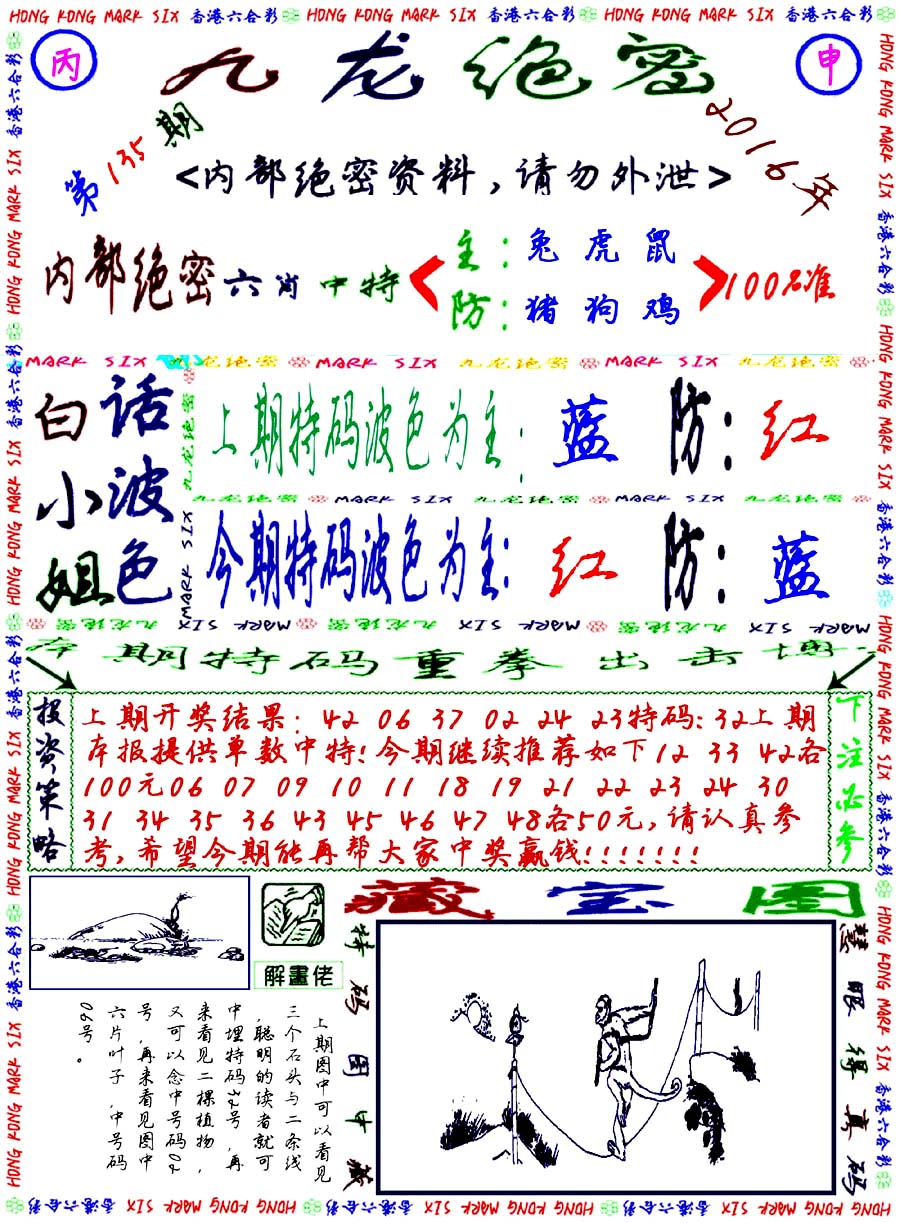 香港六合彩 HONG KONG MARK SIX 香港六合彩 HONG KONG MARK SIX 香港六合彩 HONG KONG MARK SIX 香港六合彩
丙
九龙绝密
申
第135期
2016年
<内部绝密资料,请勿外泄>
内部绝密六肖中特
主:兔虎鼠
防:猪狗鸡
100%准
MARK SIX 九龙绝密 MARK SIX 九龙绝密 MARK SIX 九龙绝密
白话小波姐色
上期特码波色为主:蓝 防:红
九龙绝密 MARK SIX 九龙绝密 MARK SIX 九龙绝密
今期特码波色为主:红 防:蓝
九龙绝密 MARK SIX 九龙绝密 MARK SIX 九龙绝密 MARK SIX
本期特码重拳出击博
投资策略
上期开奖结果:42 06 37 02 24 23特码:32上期
本报提供单数中特!今期继续推荐如下12 33 42各
100元06 07 09 10 11 18 19 21 22 23 24 30
31 34 35 36 43 45 46 47 48各50元,请认真参
考,希望今期能再帮大家中奖赢钱!!!!!!!
下注必参
藏宝图
解畫佬
特码图中藏
慧眼得真码
上期图中可以看见
三个石头与二条线
,聪明的读者就可
中埋特码32号,再
来看见二棵植物,
又可以念中号码02
号,再来看见图中
六片叶子,中号码
06号。